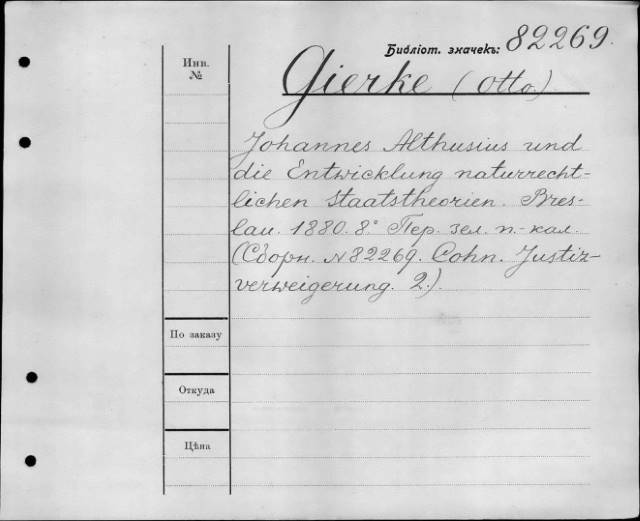 Библіот. значекъ: 82269.
Инв. №
Gierke (Otto)
Johannes Althusius und
die Entwicklung naturrecht-
lichen Staatstheorien. Bres-
lau. 1880. 8° Пер. зел. п.-кал.
(Сборн. №82269. Cohn. Justiz-
verweigerung. 2.)
По заказу
Откуда
Цѣна